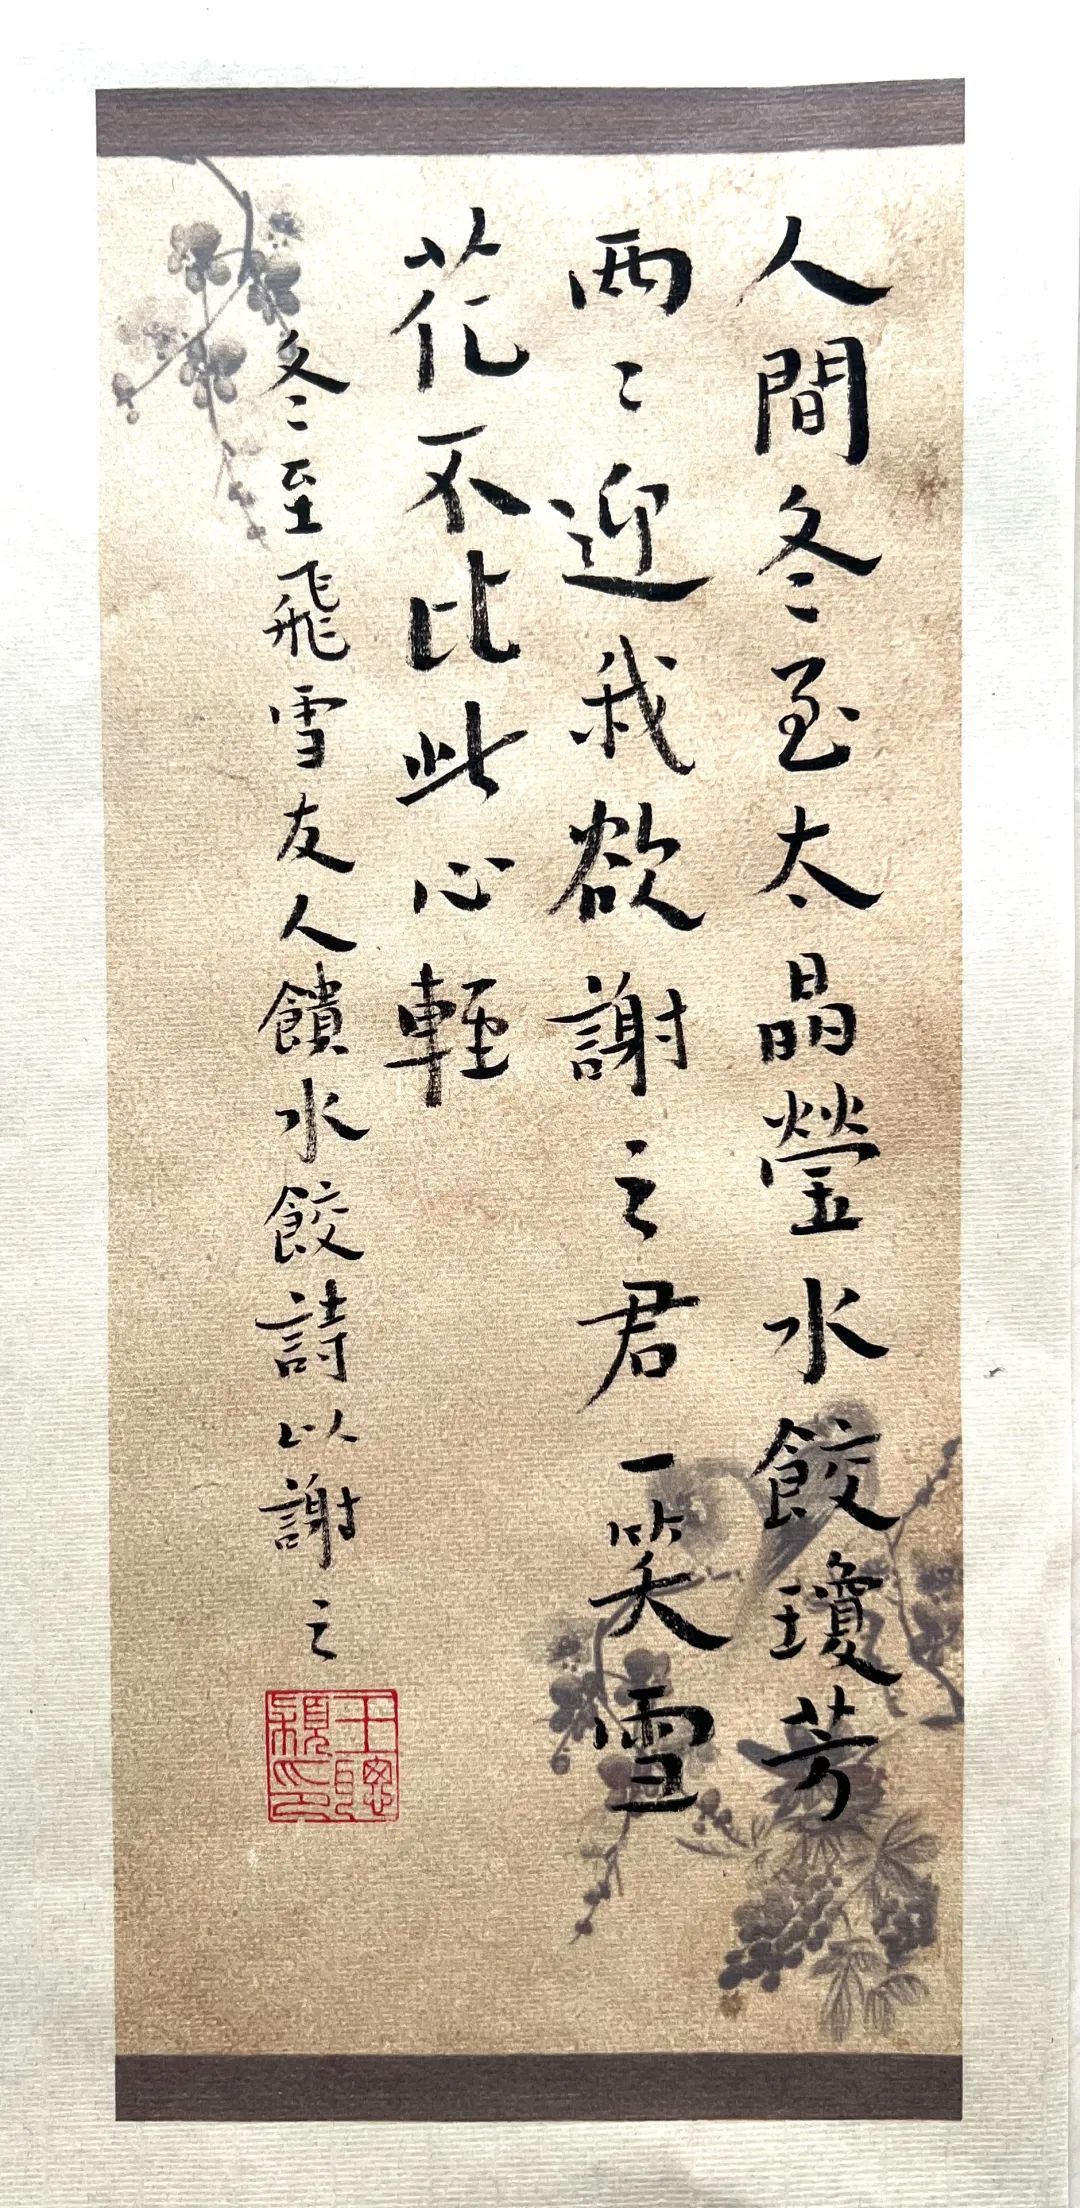 人間冬至太晶瑩水餃瓊芳
兩〻迎我欲謝之君一笑雪
花不比此心輕
冬至飛雪友人饋水餃詩以謝之
王聰穎印